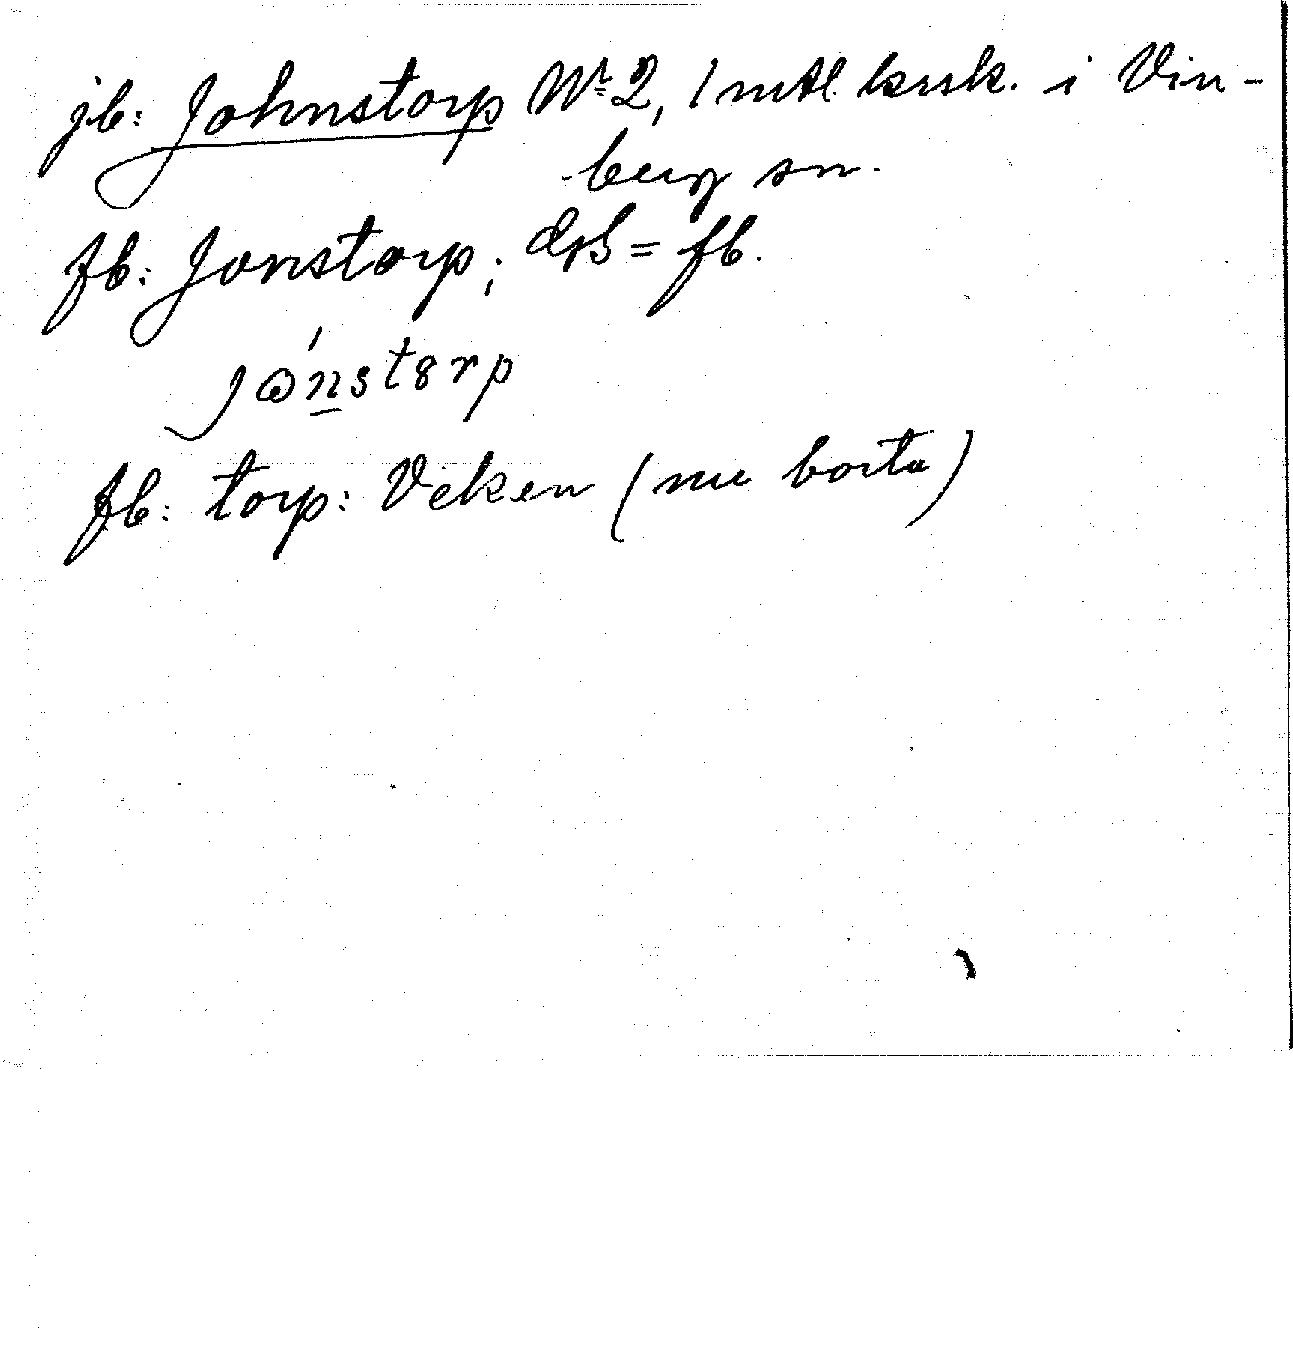 jb: Johnstorp Nr 2, 1 mtl krsk. i Vin-
berg sn.
fb: Jonstorp; dpb = fb.
fb: torp: Veken (nu borta)